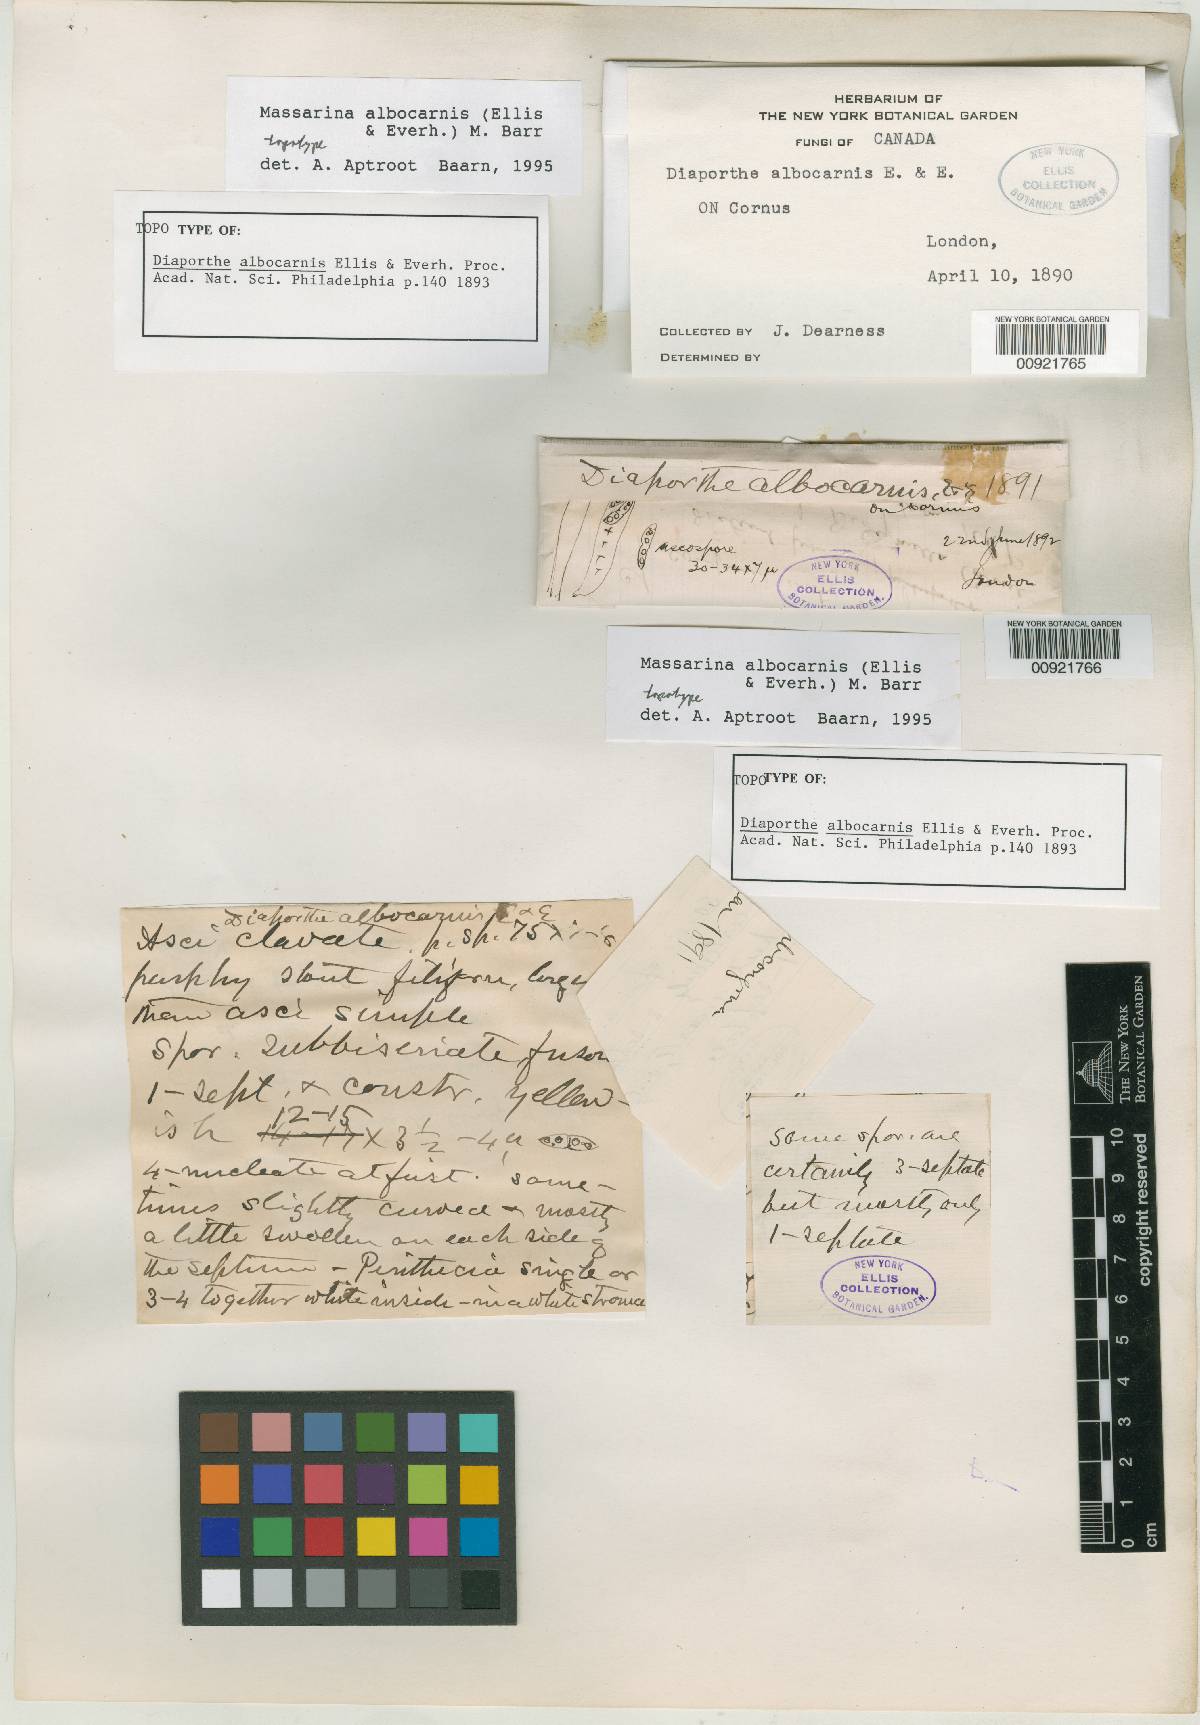 Massarina albocarnis (Ellis
& Everh.) M. Barr
topotype
det. A. Aptroot Baarn, 1995
TOPO TYPE OF:
Diaporthe albocarnis Ellis & Everh. Proc.
Acad. Nat. Sci. Philadelphia p.140 1893
HERBARIUM OF
THE NEW YORK BOTANICAL GARDEN
FUNGI OF CANADA
Diaporthe albocarnis E. & E.
ON Cornus
London,
April 10, 1890
COLLECTED BY J. Dearness
DETERMINED BY
NEW YORK
ELLIS
COLLECTION
BOTANICAL GARDEN
NEW YORK BOTANICAL GARDEN
00921765
Diaporthe albocarnis, 1891
on Cornus
ascospore
30-34x7 µ
22nd June 1892
London
NEW YORK
ELLIS
COLLECTION
BOTANICAL GARDEN.
NEW YORK BOTANICAL GARDEN
00921766
Massarina albocarnis (Ellis
& Everh.) M. Barr
topotype
det. A. Aptroot Baarn, 1995
TOPO TYPE OF:
Diaporthe albocarnis Ellis & Everh. Proc.
Acad. Nat. Sci. Philadelphia p.140 1893
Diaporthe albocarnis E & E
Asci clavate p. sp. 75 x
paraphy stout filiform, longer
than asci simple
Spor. subbiseriate, fusoi
1-sept. & constr. yellow-
ish 12-15 14-17 x 3 1/2 -4 µ
4-nucleate at first. some-
times slightly curved & mostly
a little swollen on each side of
the septum - Perithecia single or
3-4 together white inside - in a white stroma
1891
Some spor. are
certainly 3-septate
but mostly only
1-septate
NEW YORK
ELLIS
COLLECTION
BOTANICAL GARDEN.
THE NEW YORK
BOTANICAL GARDEN
copyright reserved
0 1 2 3 4 5 6 7 8 9 10
cm